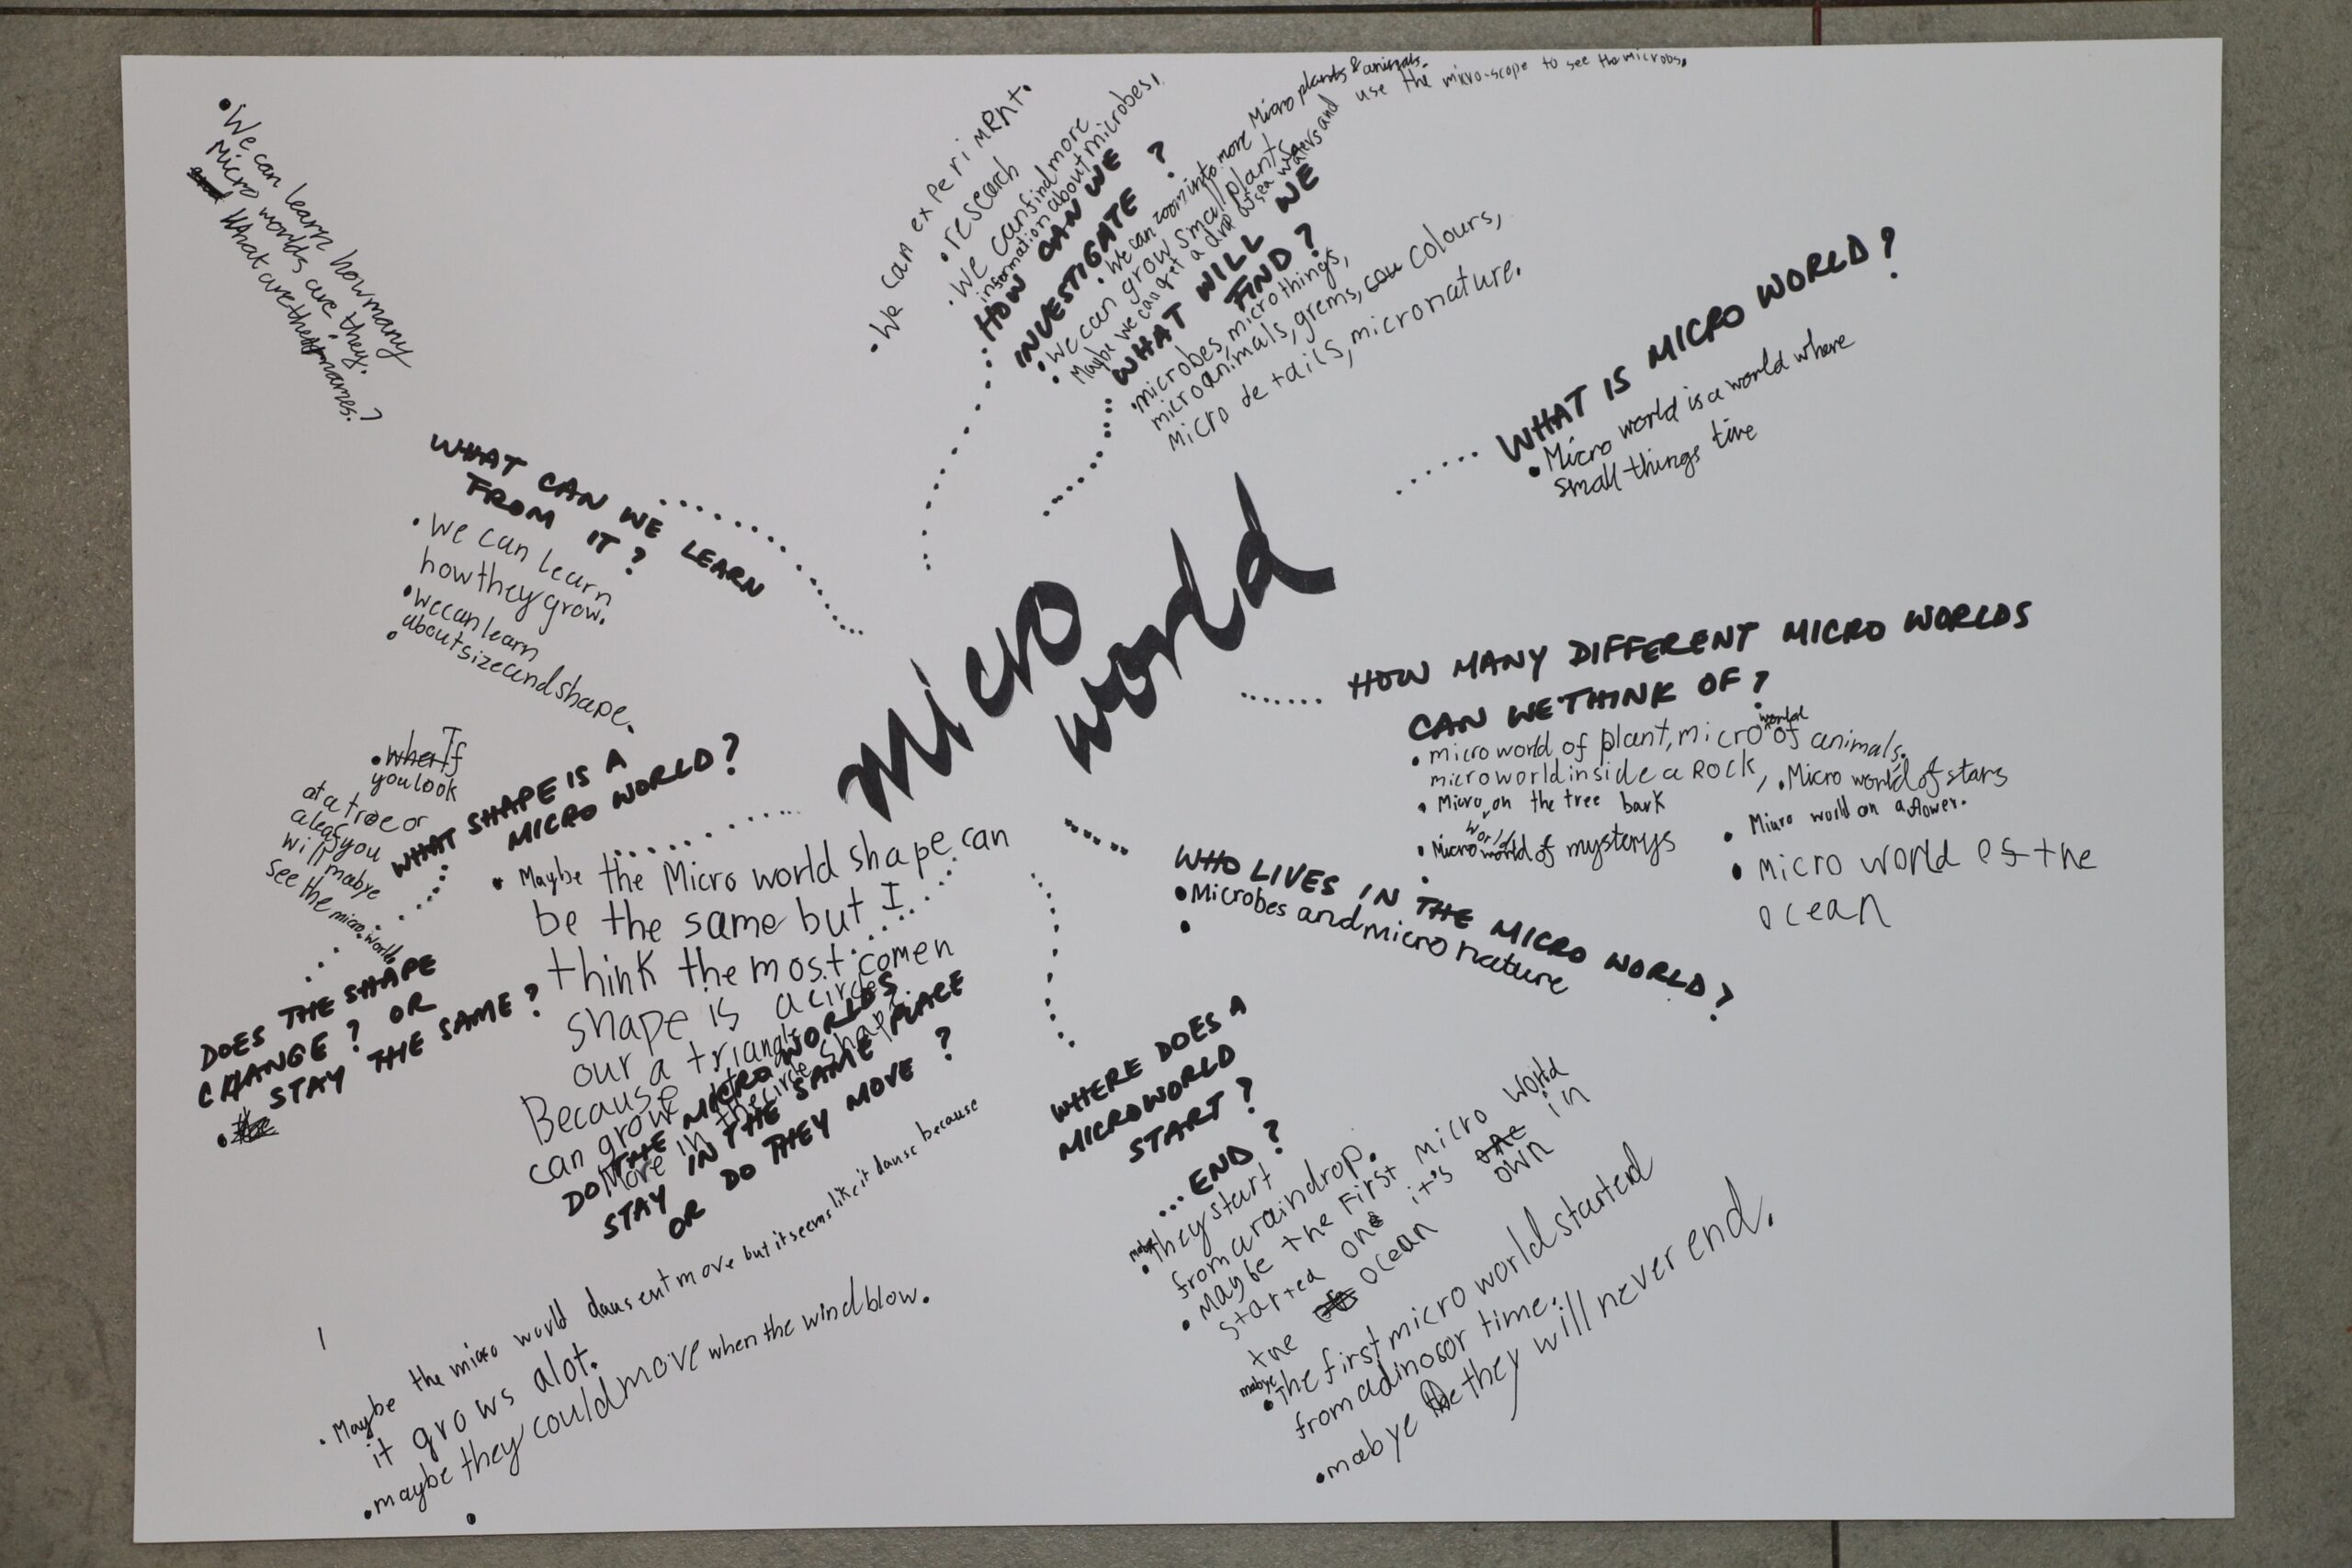 Micro
world
WHAT IS MICRO WORLD?
• Micro world is a world where
small things live
HOW MANY DIFFERENT MICRO WORLDS
CAN WE THINK OF?
• micro world of plant, micro world of animals.
micro world inside a ROCK,
• Micro world of stars
• Micro, on the tree bark
• Micro world on a flower.
• Micro world of mysterys
• Micro world of the
ocean
WHO LIVES IN THE MICRO WORLD?
• Microbes and micro nature
WHERE DOES A
MICROWORLD
START?
...END?
• mabye they start
from a raindrop.
• Maybe the First micro world
started one it's own in
the ocean
• mabye the first micro world started
from a dinosor time.
• mabye they will never end.
DO THE MICRO WORLDS
STAY IN THE SAME PLACE
OR DO THEY MOVE?
• Maybe the micro world dausent move but it seems like it dause because
it grows alot.
• maybe they could move when the wind blow.
WHAT SHAPE IS A
MICRO WORLD?
• Maybe the Micro world shape can
be the same but I
think the most comen
shape is a circle
our a triangle
Because
can grow
More in the circle shape
DOES THE SHAPE
CHANGE? OR
STAY THE SAME?
• If
you look
at a tree or
a leaf you
will mabye
see the micro world
WHAT CAN WE LEARN
FROM IT?
• We can learn
how they grow.
• we can learn
about size and shape.
• We can learn how many
Micro worlds are they.
What are their names?
HOW CAN WE
INVESTIGATE?
• We can experiment.
• research
• We can find more
information about microbes!
• We can zoom into more Micro plants & animals.
• We can grow small plants
• Maybe we can get a drop of sea waters and use the micro-scope to see the microbs.
WHAT WILL WE
FIND?
• microbes, micro things,
micro animals, grems, colours,
micro details, micro nature.